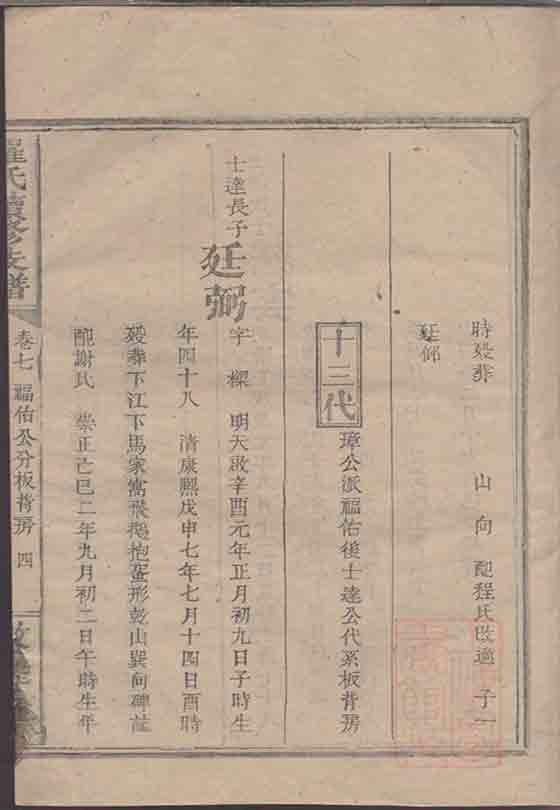 時歿葬 山 向 配程氏改適 子一
廷𠇹
十三代
璋公派福佑後士達公代系板背房
士達長子
廷弼
字 樑 明天啟辛酉元年正月初九日子時生
年四十八 清康熙戊申七年七月十四日酉時
歿葬下江下馬家窩飛鵝抱蛋形乾山巽向碑註
配謝氏 崇正己巳二年九月初二日午時生年
羅氏續修支譜
卷七 福佑公分板背房 四